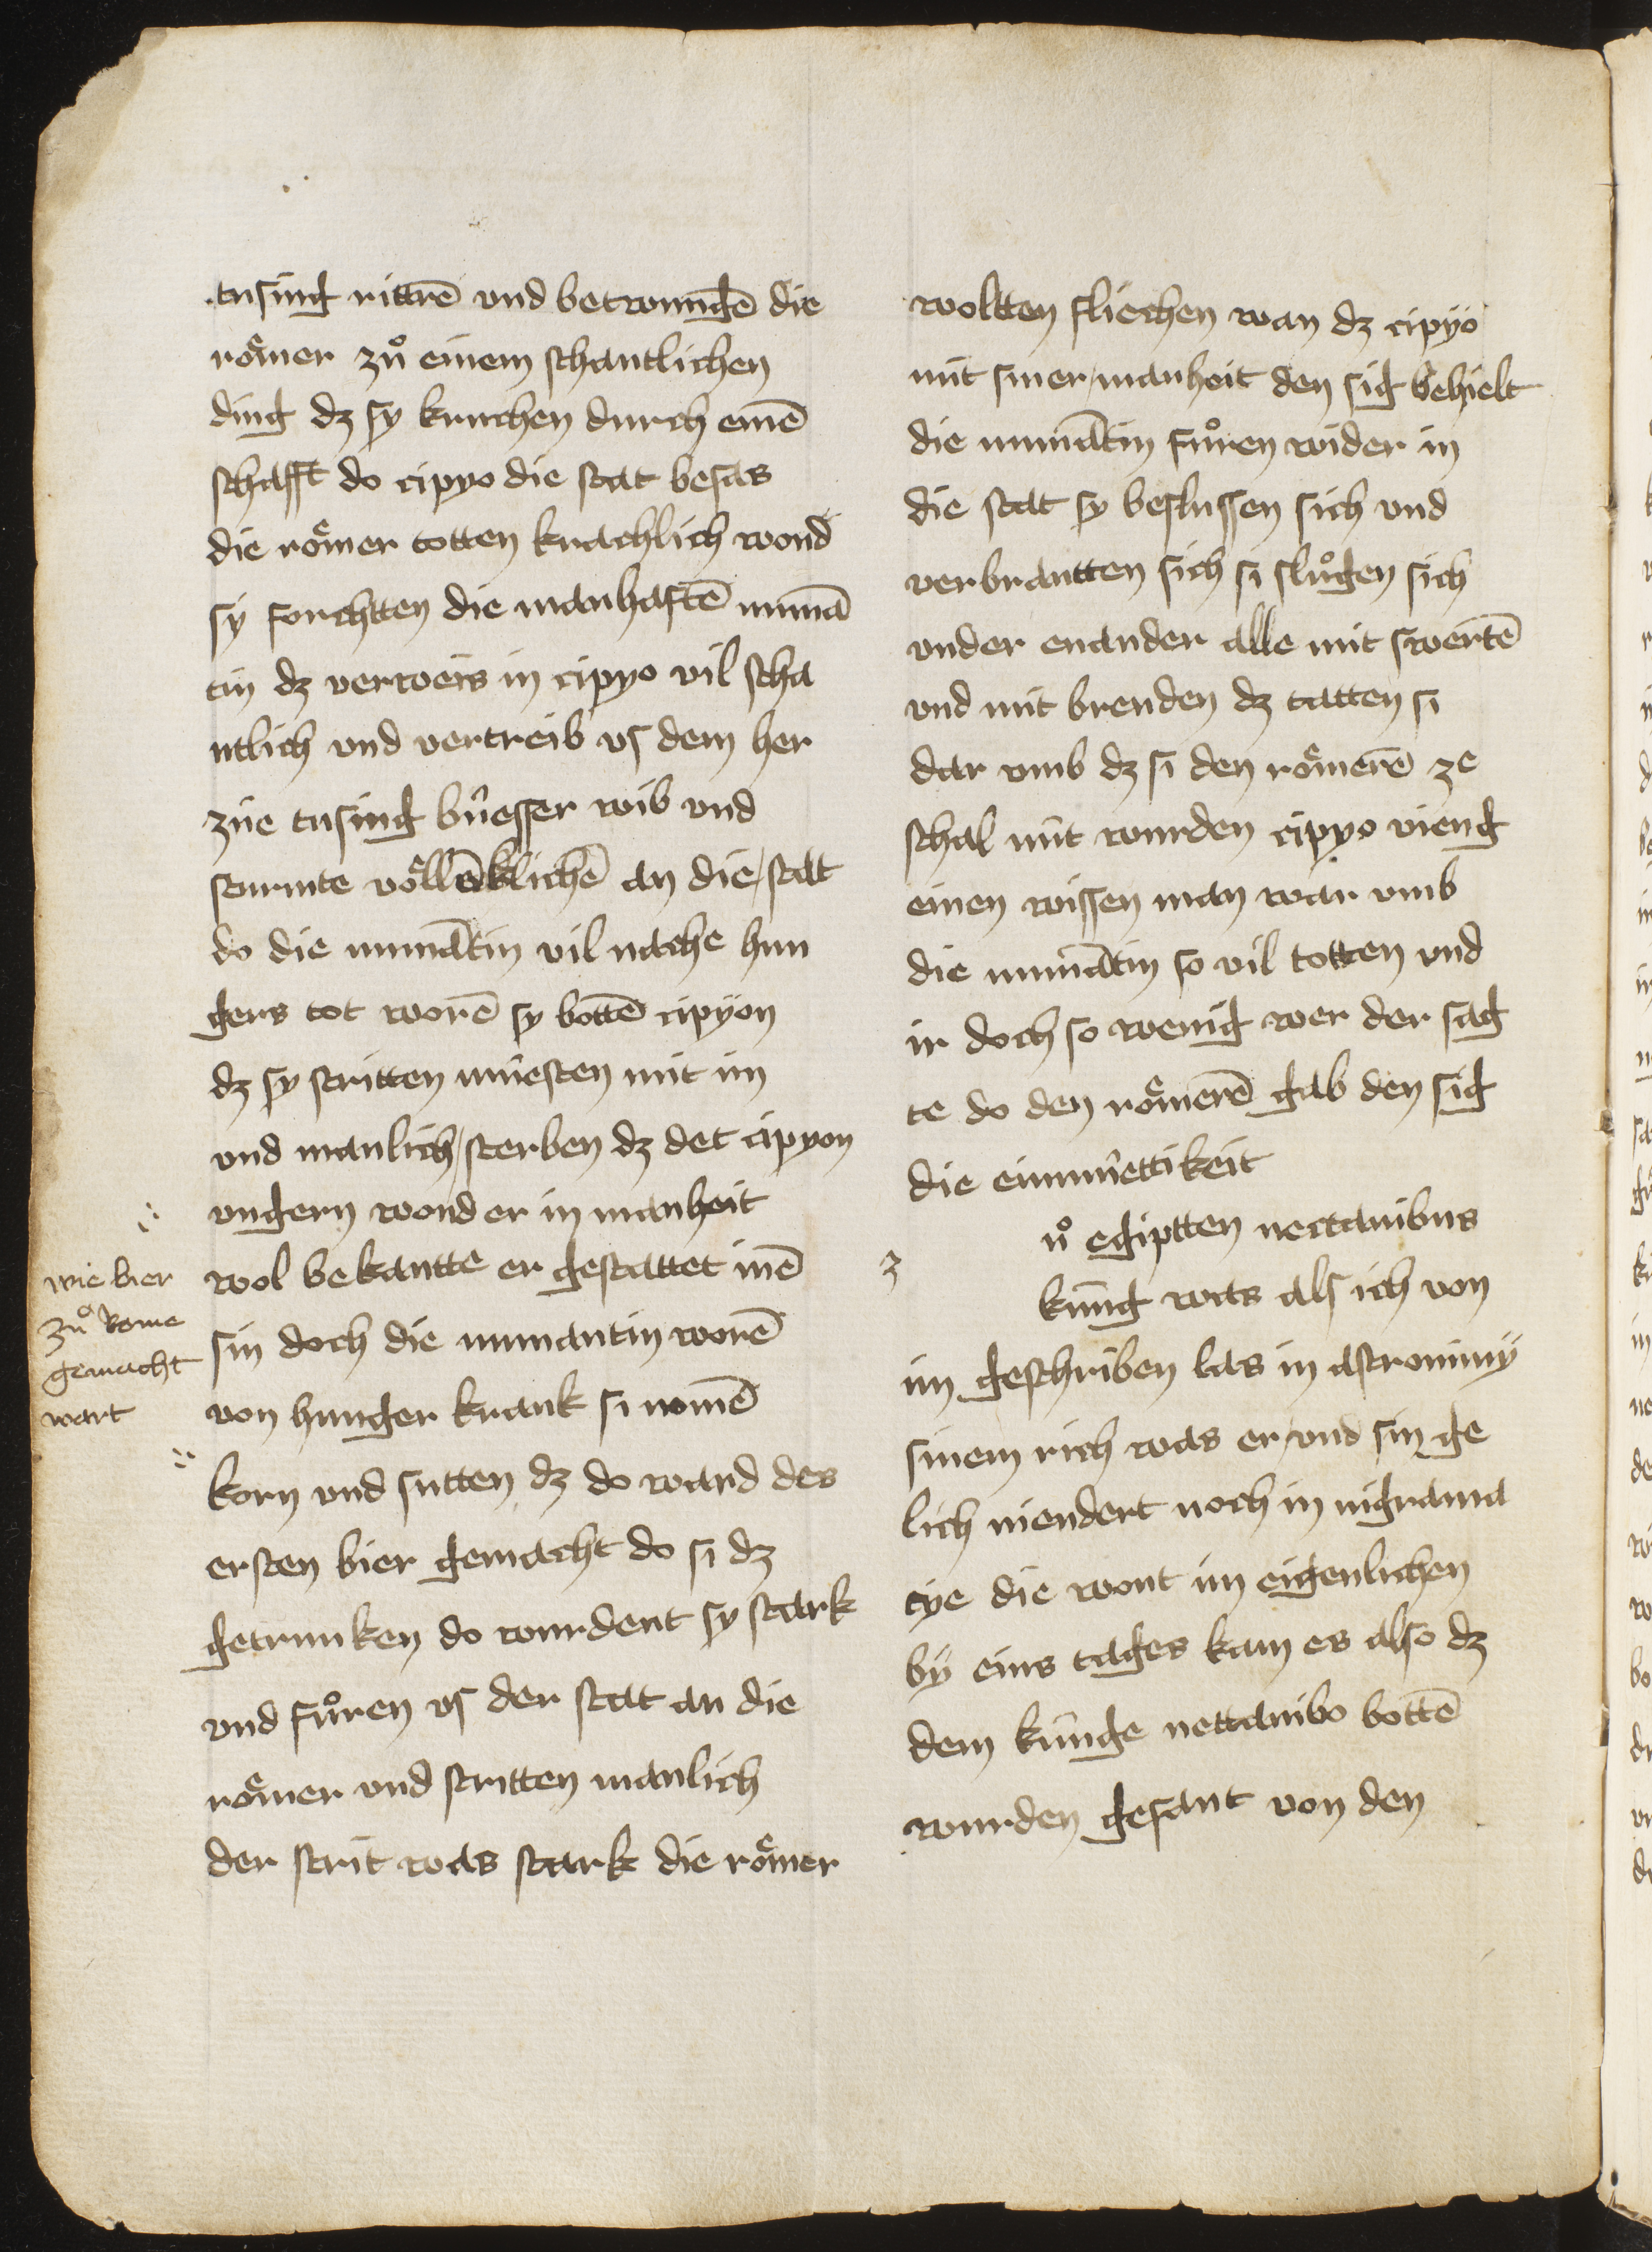 tusing rittrē vnd betwungē die
rômer zů einem schantlichen
ding dz sy kruchen durch einē
schafft do cipyo die stat besas
die rômer totten krachlich wond
sÿ forchtten die manhaftē numā
tin dz verweis in cipyo vil scha
ntlich vnd vertreib vs dem her
züe tusing bûesser wib vnd
sturmte vôllēklichē an die stat
do die numātin vil nache hun
gers tot worē sy bottē cipÿon
dz sy stritten mûesten mit im
vnd manlich sterben dz det cipyon
vngern wond er in manheit
wol bekantte er gestattet inē
sin doch die numantin worē
von hunger krank si nomē
korn vnd sutten dz do ward des
ersten bier gemacht do si dz
getrunken do wurdent sy stark
vnd fůren vs der stat an die
rômer vnd stritten manlich
der strit was stark die rômer
wie bier
zů Rome
gemacht
wart
woltten fliechen wan dz cipÿo
mit siner manheit den sig behielt
die numātin fůren wider in
die stat sy beslussen sich vnd
verbrantten sich si slůgen sich
vnder enander alle mit swertē
vnd mit brenden dz tatten si
dar vmb dz si den rômerē ze
schal nût wurden cipyo vieng
einen wissen man war vmb
die numātin so vil totten vnd
ir doch so wenig wer der sag
te do den rômerē gab den sig
die einmûettikeit
z
ů egiptten nectanibus
kûng was als ich von
im geschriben las in astronimÿ
sinem rich was er vnd sin ge
lich niendert noch in nigrama
cÿe die wont im eigenlichen
bÿ eins tages kam es also dz
dem kûnge nettanibo bottē
wurden gesant von den